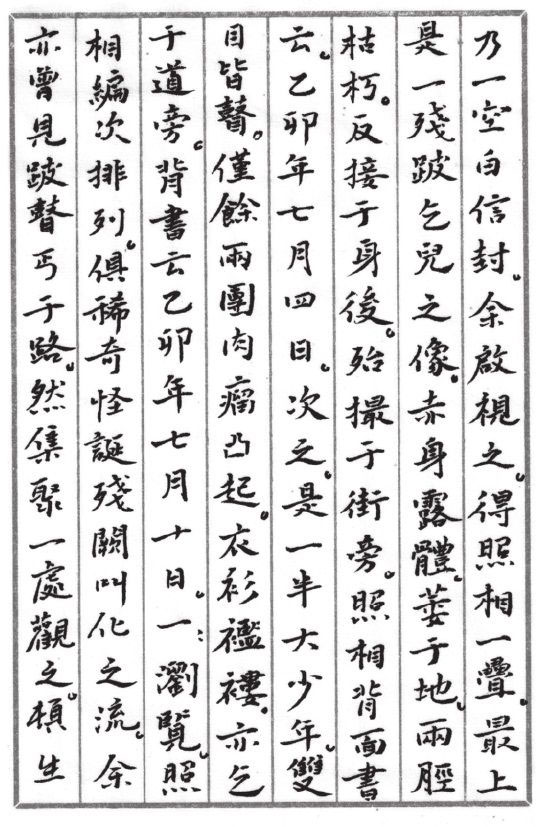 乃一空白信封。余啟視之。得照相一疊。最上
是一殘跛乞兒之像。赤身露體。萎于地。兩脛
枯朽。反接于身後。殆撮于街旁。照相背面書
云。乙卯年七月四日。次之。是一半大少年。雙
目皆瞽。僅餘兩團肉瘤凸起。衣衫襤褸。亦乞
于道旁。背書云乙卯年七月十日。一一瀏覽。照
相編次排列。俱稀奇怪誕殘闕叫化之流。余
亦曾見跛瞽丐于路。然集聚一處觀之。頓生